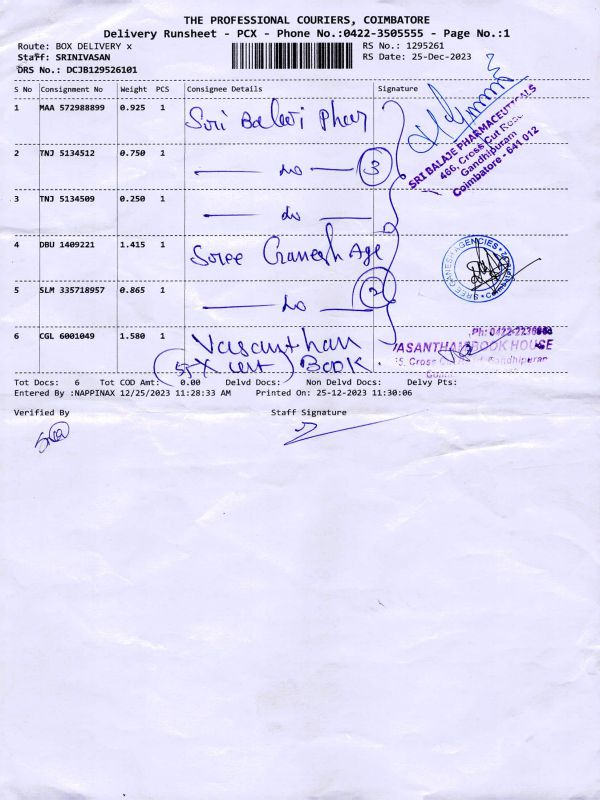 THE PROFESSIONAL COURIERS, COIMBATORE
Delivery Runsheet - PCX - Phone No.:0422-3505555 - Page No.:1
Route: BOX DELIVERY x
RS No.: 1295261
Staff: SRINIVASAN
RS Date: 25-Dec-2023
DRS No.: DCJB129526101
S No Consignment No Weight PCS Consignee Details Signature
1 MAA 572988899 0.925 1 Sri Balaji Phar
SRI BALAJE PHARMACEUTICALS
466, Cross Cut Road
Gandhipuram
Coimbatore - 641 012
2 TNJ 5134512 0.750 1 — do — 3
3 TNJ 5134509 0.250 1 — do —
4 DBU 1409221 1.415 1 Sree Ganesh Age
SREE GANESH AGENCIES
5 SLM 335718957 0.865 1 — do — 2
6 CGL 6001049 1.580 1 Vasanthan
55 X cut Book.
VASANTHAM BOOK HOUSE
Tot Docs: 6 Tot COD Amt: 0.00 Delvd Docs: Non Delvd Docs: Delvy Pts:
Entered By :NAPPINAX 12/25/2023 11:28:33 AM Printed On: 25-12-2023 11:30:06
Verified By Staff Signature